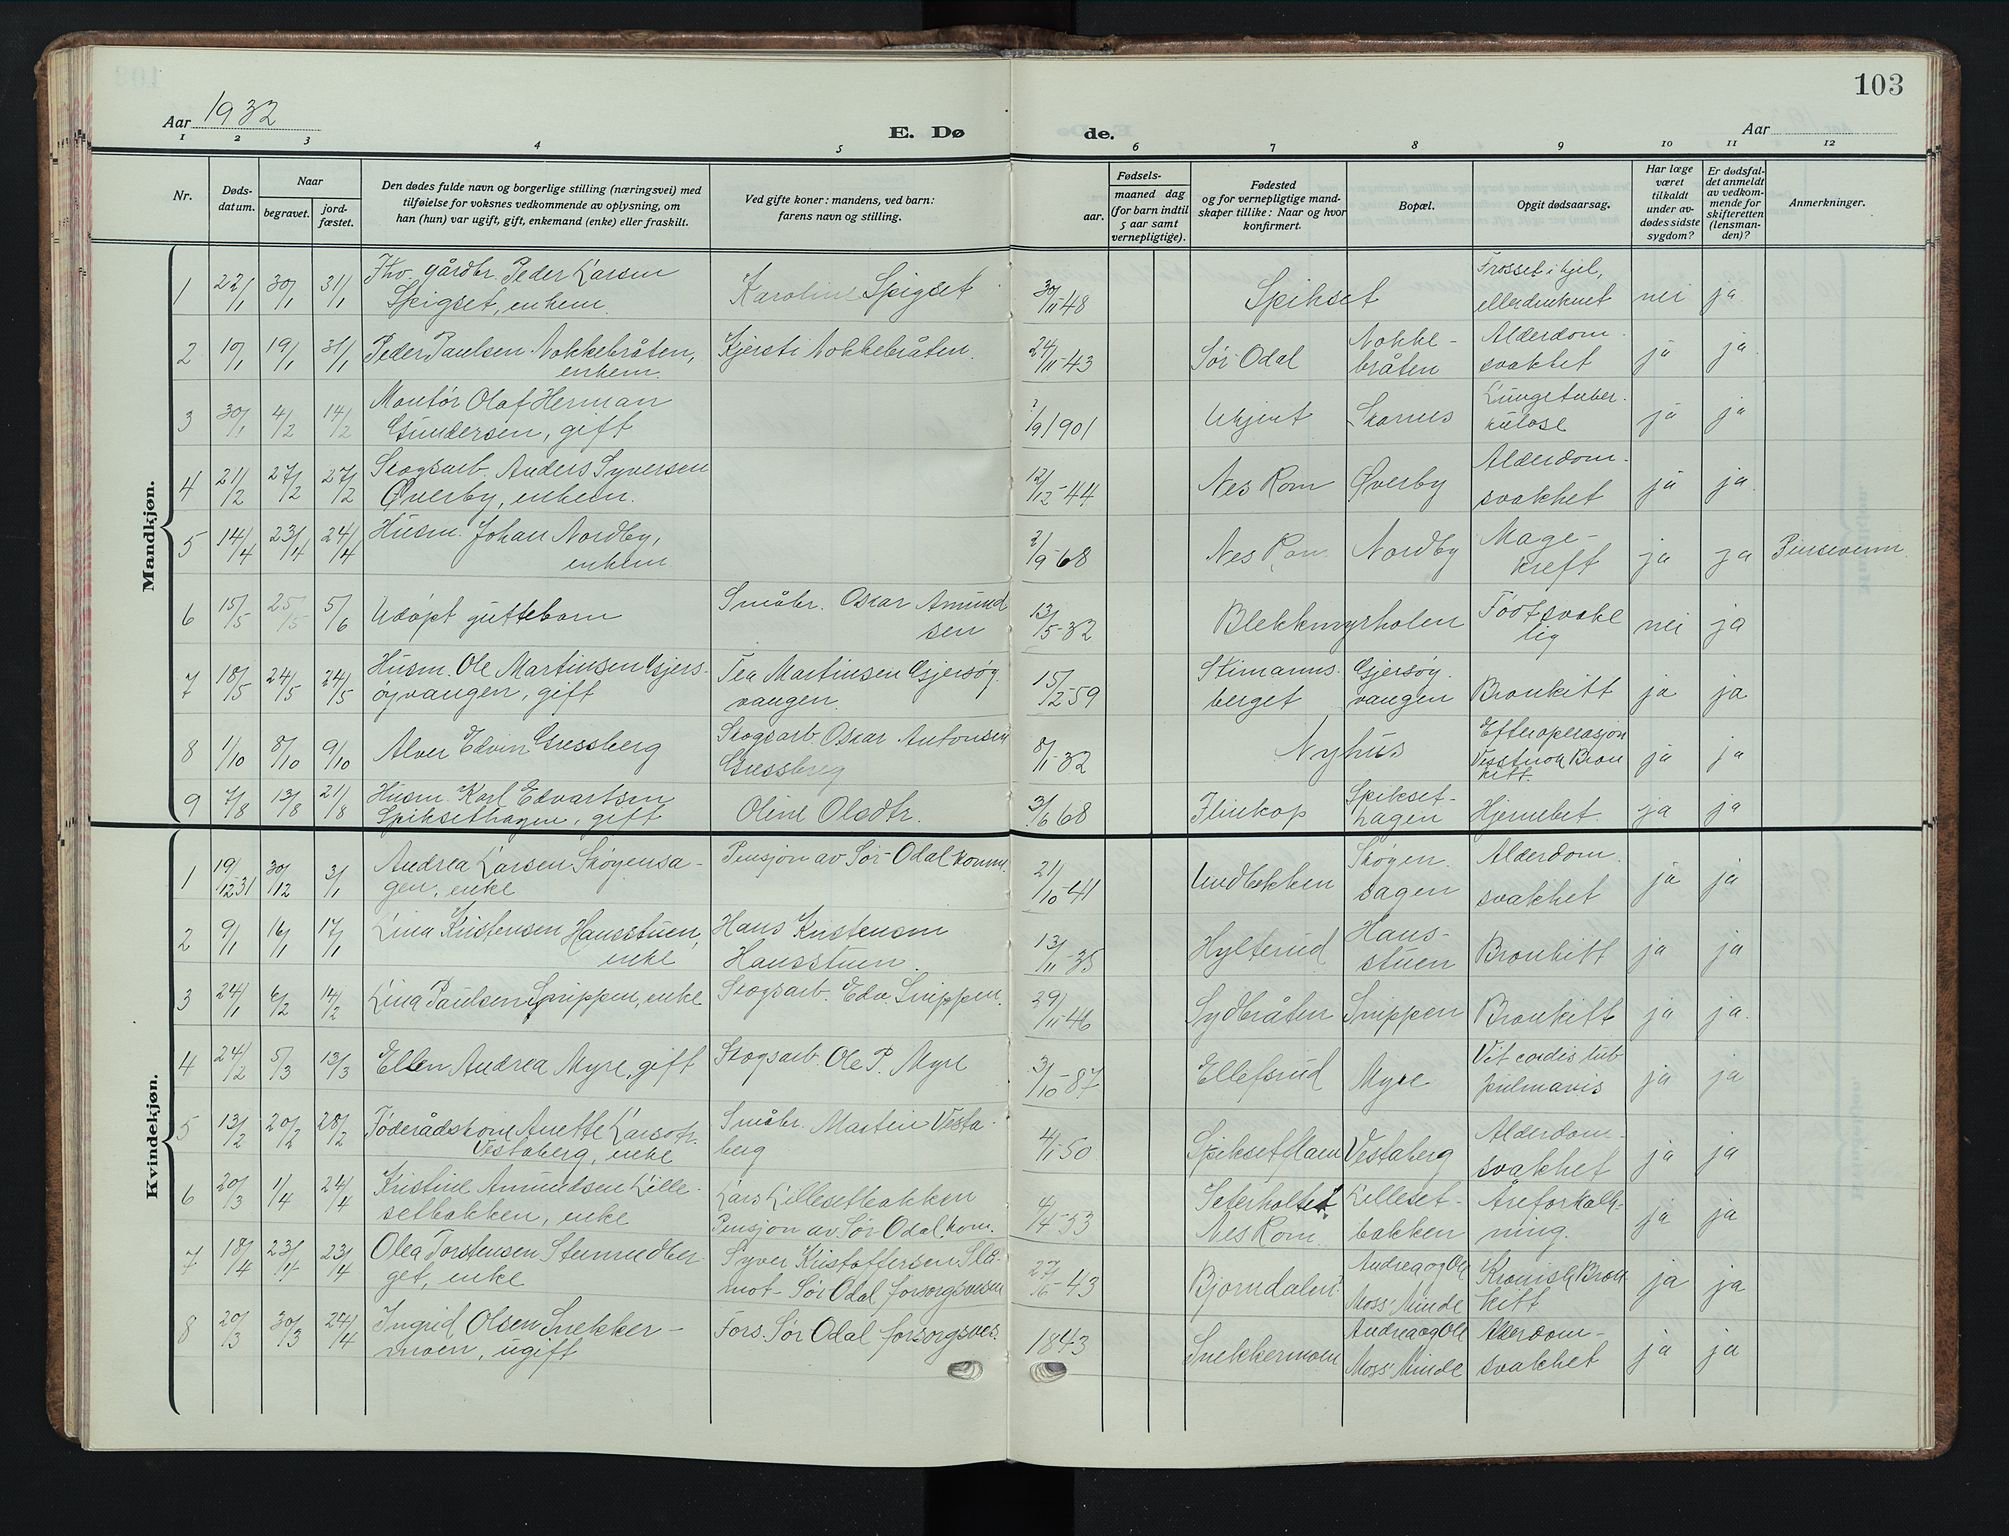 103
Aar 1932
E. Dø
de.
Aar
1 2 3 4 5 6 7 8 9 10 11 12
Nr.
Døds-
datum.
Naar
begravet.
jord-
fæstet.
Den dødes fulde navn og borgerlige stilling (næringsvei) med
tilføielse for voksnes vedkommende av oplysning, om
han (hun) var ugift, gift, enkemand (enke) eller fraskilt.
Ved gifte koner: mandens, ved barn:
farens navn og stilling.
Fødsels-
aar.
maaned dag
(for barn indtil
5 aar samt
vernepligtige).
Fødested
og for vernepligtige mand-
skaper tillike: Naar og hvor
konfirmert.
Bopæl.
Opgit dødsaarsag.
Har læge
været
tilkaldt
under av-
dødes sidste
sygdom?
Er dødsfal-
det anmeldt
av vedkom-
mende for
skifteretten
(lensman-
den)?
Anmerkninger.
Mandkjøn.
1 22/1 30/1 31/1 Fhv. gårdbr. Peder Larsen Karoline Spigset 30/11-48 Spikset Frosset ihjel, nei ja
Spigset, enkem. eller druknet
2 10/1 19/1 31/1 Peder Paulsen Nokkebråten, Kjersti Nokkebråten. 24/11-43 Sør Odal Nokke- Alderdom- ja ja
enkem. bråten svakhet
3 30/1 4/2 14/2 Montør Olaf Herman /9 1901 Ukjent Skarnes Lungetuber- ja ja
Gundersen, gift kulose
4 21/2 27/2 27/2 Skogsarb. Anders Syversen 12/12-44 Nes Rom. Øverby Alderdom- ja ja
Øverby, enkem. svakhet
5 14/4 23/4 24/4 Husm. Johan Nordby, 2/9-68 Nes Rom. Nordby Mage- ja ja Pinsevenn
enkem kreft
6 15/5 25/5 5/6 Udøpt guttebarn Småbr. Oskar Amund 13/5-32 Blekkmyrholen Fødtsvake nei ja
sen lig
7 18/5 24/5 24/5 Husm. Ole Martinsen Gjers- Tea Martinsen Gjersøy 15/2-59 Stimanns- Gjersøy- Bronkitt ja ja
øyvangen, gift vangen. berget vangen
8 1/10 8/10 9/10 Alver Edvin Gressberg Skogsarb. Oskar Antonsen 8/1-32 Nyhus Efter operasjon ja ja
Gressberg Bron
kitt.
9 7/8 13/8 21/8 Husm. Karl Edvartsen Oline Olsdtr. 3/6 68 Flinkop Spikset- Hjernebet. ja ja
Spiksethagen, gift hagen
Kvindekjøn.
1 19/12 31 30/12 3/1 Andrea Larsen Skøyensa- Pensjon av Sør-Odal komm. 21/10-41 Undbekken Skøyen- Alderdom- ja ja
gen, enke sagen svakhet
2 9/1 16/1 17/1 Lina Kristensen Hansstuen, Hans Kristensen 13/11-35 Hylterud Hans- Bronkitt ja ja
enke Hansstuen. stuen
3 24/1 6/2 14/2 Lina Paulsen Snippen, enke Skogsarb. Edv. Snippen. 29/11-46 Sydbråten Snippen Bronkitt ja ja.
4 24/2 5/3 13/3 Ellen Andrea Myre, gift Skogsarb. Ole P. Myre 3/10-87 Ellefsrud Myre Vit cordis tub ja ja
pulmavis
5 13/2 20/2 28/2 Føderådskone Anette Larsdtr. Småbr. Martin Vesta- 4/1-50 Spiksetflaen Vestaberg Alderdom- ja ja
Vestaberg, enke berg svakhet
6 20/3 1/4 24/4 Kristine Amundsen Lille- Lars Lillesetbakken 4/4-53 Seterholtet Lilleset- Åreforkalk- ja ja
setbakken, enke Pensjon av Sør Odal kom. Nes Rom. bakken ning.
7 18/4 23/4 23/4 Olea Torstensen Stemundber- Syver Kristoffersen Slå- 27/6-43 Bjørndalen Andrea og Ole Kronisk Bron ja ja
get, enke mot - Sør Odal forsorgsvesen Moss' Minde kitt
8 20/3 30/3 24/4 Ingrid Olsen Snekker- Fors. Sør Odal forsorgsves. 1843 Snekkermoen Andrea og Ole Alderdom- ja ja
moen, ugift Moss' Minde svakhet